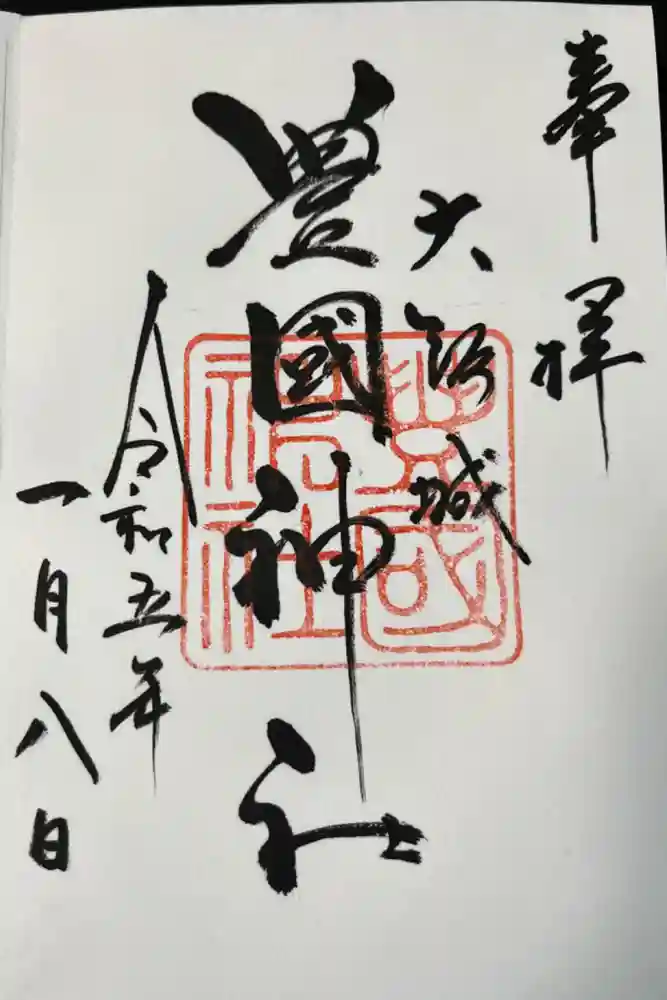 奉拝
大阪城
豊國神社
豊國神社
令和五年
一月八日